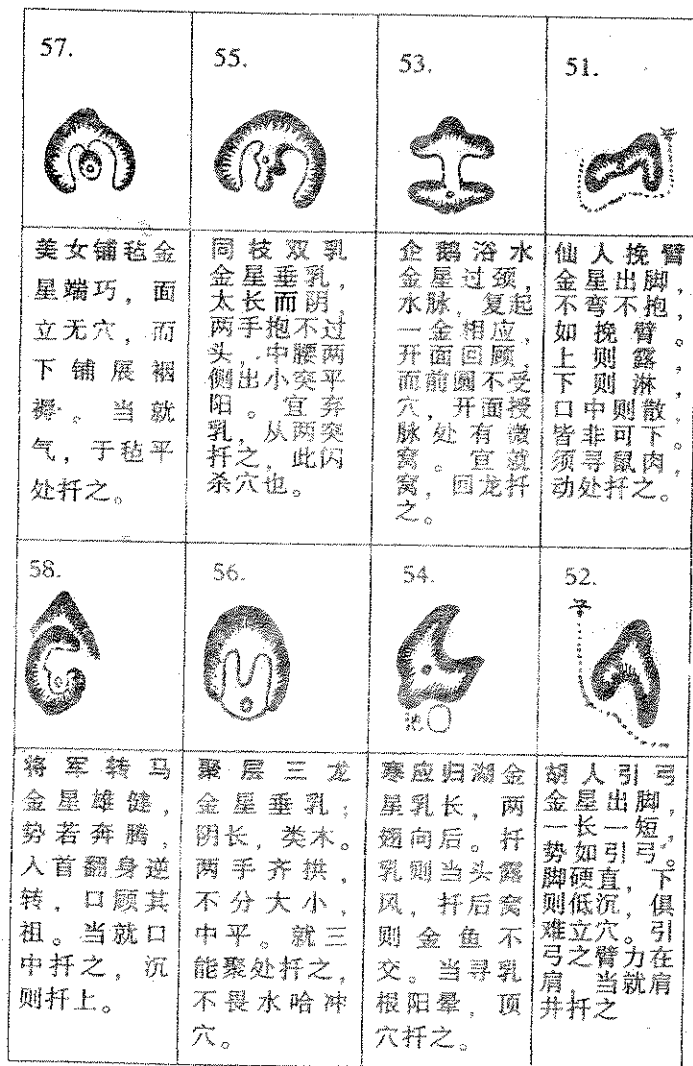 57.
美女铺毡金
星端巧，面
立无穴，而
下铺展裀
褥。当就
气，于毡平
处扦之。
55.
同枝双乳
金星垂乳，
太长而阴，
两手抱不过
头，中腰两
侧出小突平
阳。宜弃
乳，从两突
扦之，此闪
杀穴也。
53.
企鹅浴水
金星过颈，
水脉，复起
一金相应，
开面回顾，
面前圆不受
穴，开面授
脉处有微
窝。宜就
窝，回龙扦
之。
51.
仙人挽臂
金星出脚，
不弯不抱，
如挽臂。
上则露，
下则淋，
口中则散，
皆非可下。
须寻鼠肉，
动处扦之。
58.
将军转马
金星雄健，
势若奔腾，
入首翻身逆
转，口顾其
祖。当就口
中扦之，沉
则扦上。
56.
聚层三龙
金星垂乳；
阴长，类木。
两手齐拱，
不分大小，
中平。就三
能聚处扦之，
不畏水哈冲
穴。
54.
池
寒应归湖金
星乳长，两
翅向后。扦
乳则当头露
风，扦后窝
则金鱼不
交。当寻乳
根阳晕，顶
穴扦之。
52.
胡人引弓
金星出脚，
一长一短，
势如引弓。
脚硬直，下
则低沉，俱
难立穴。引
弓之臂力在
肩，当就肩
井扦之